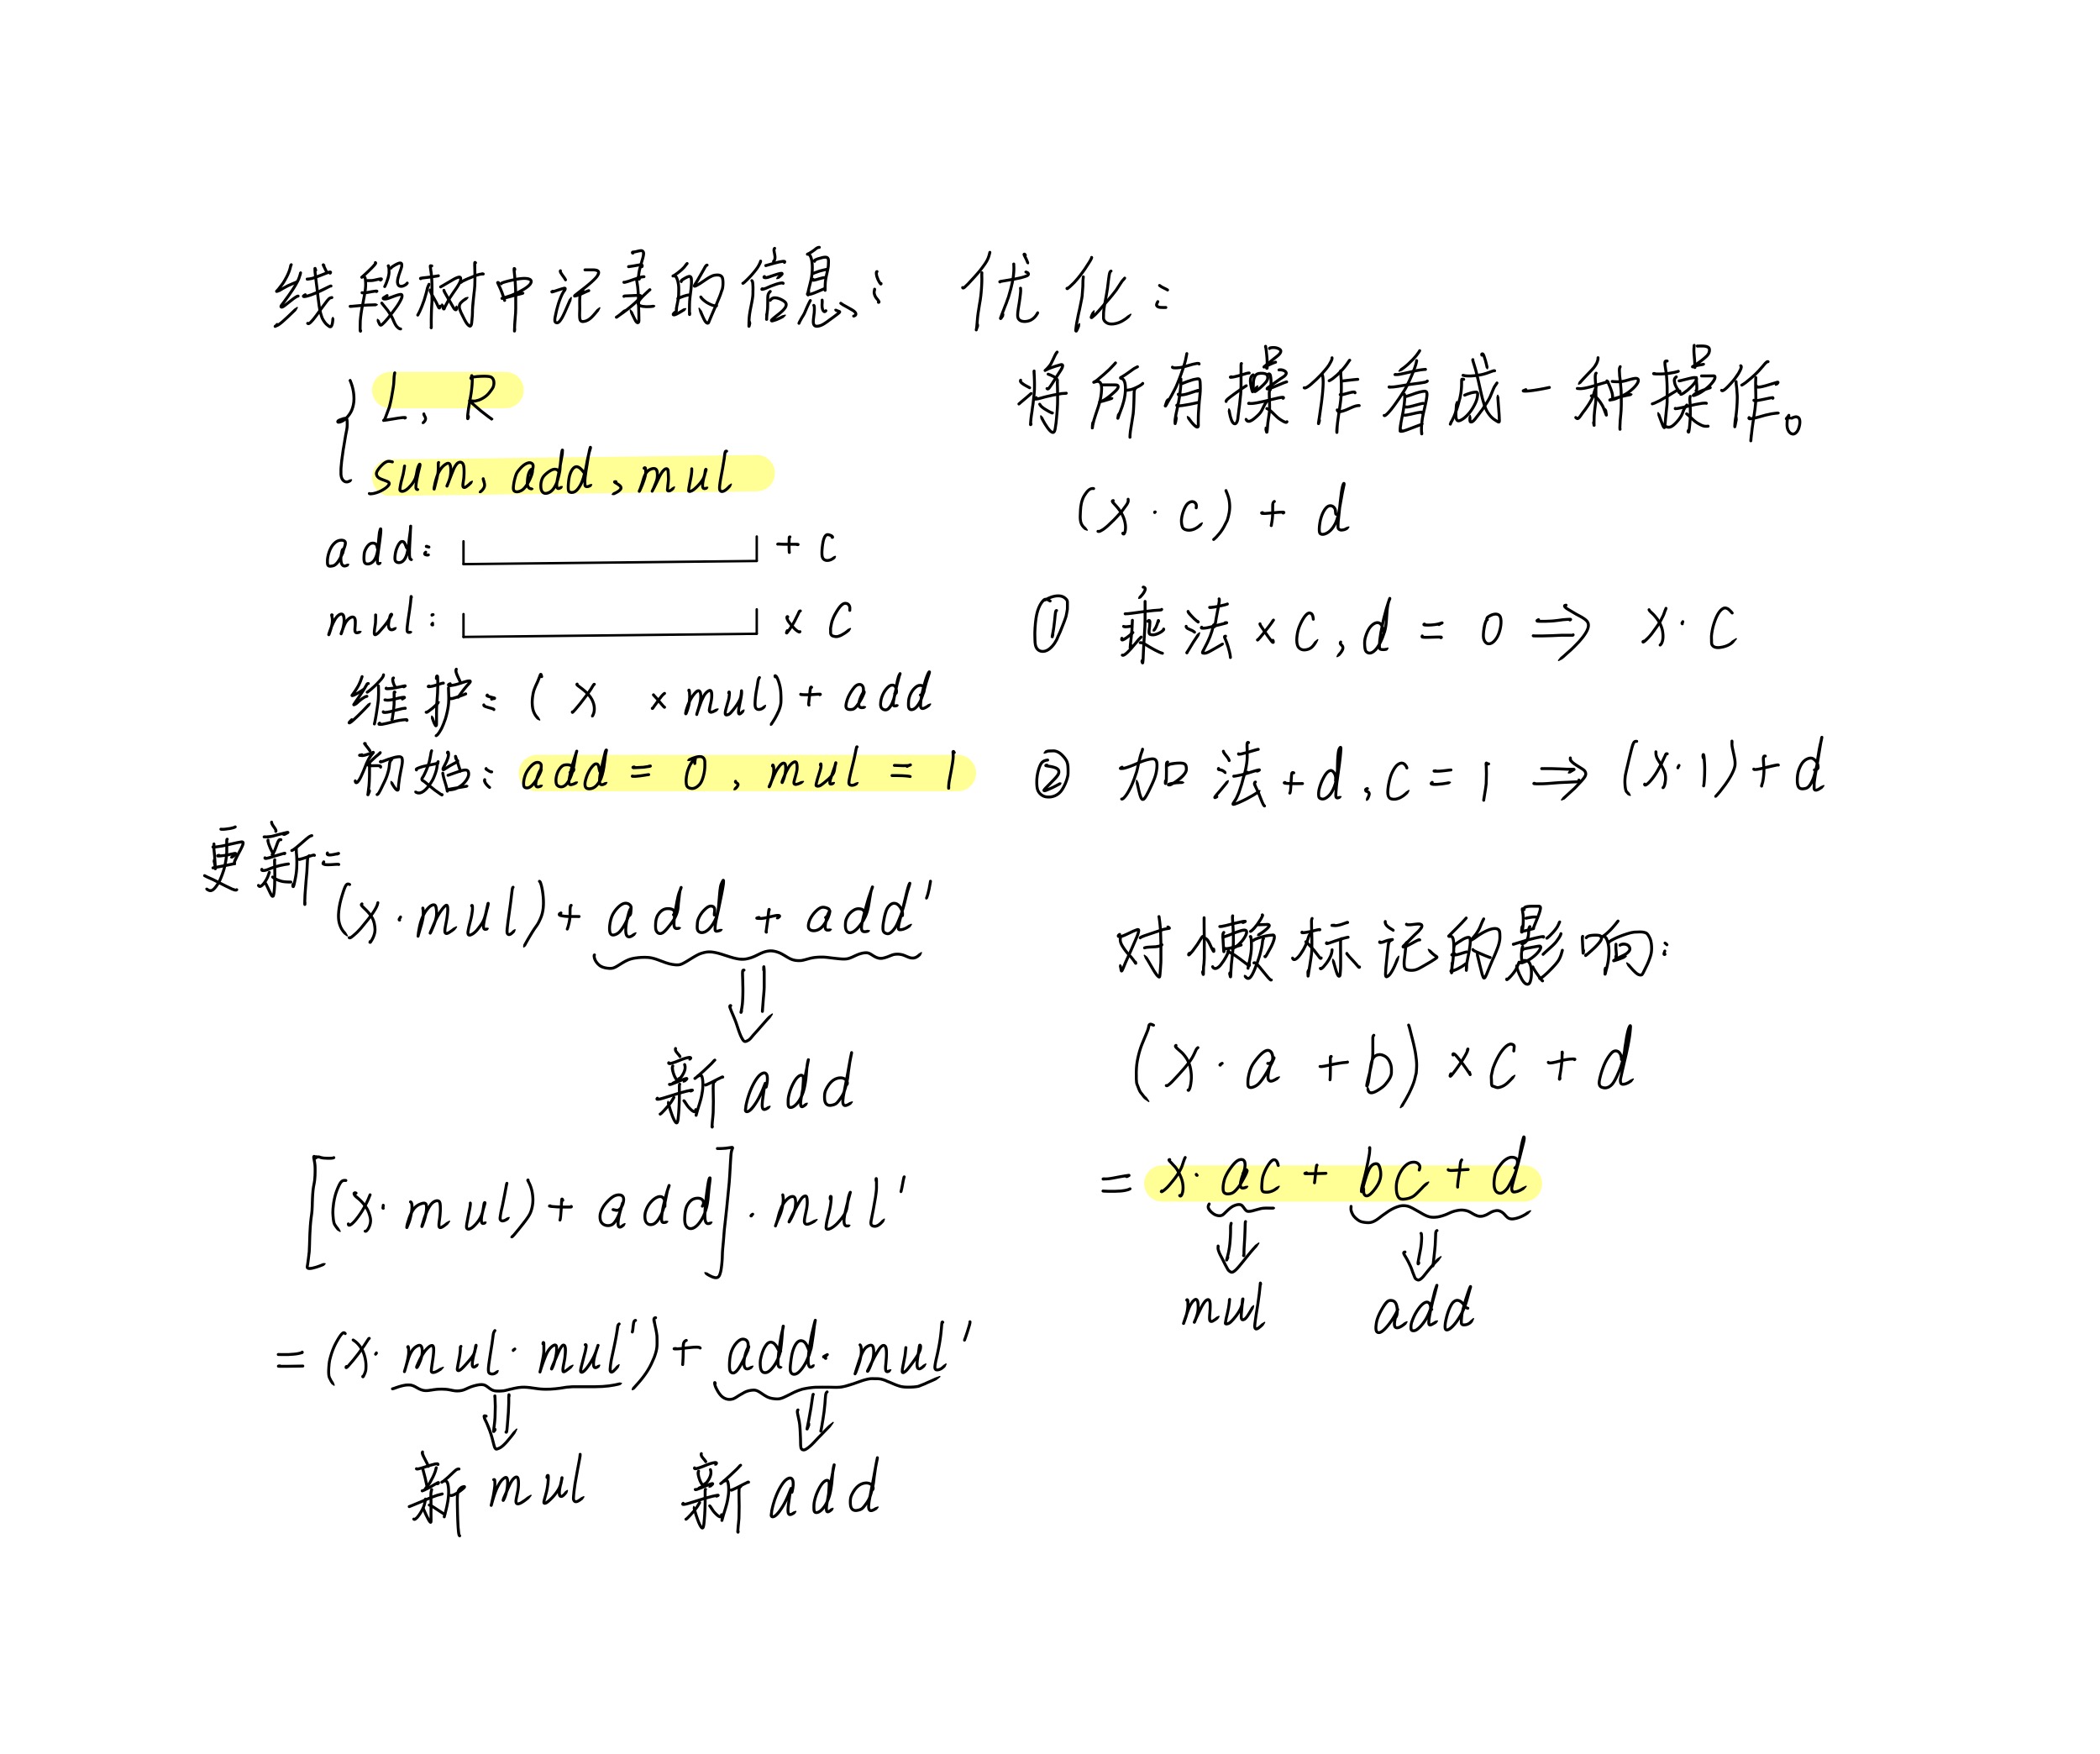 线段树中记录的信息:
L, R
sum, add, mul
add: + c
mul: × c
维护: (x × mul) + add
初始: add = 0, mul = 1
更新:
(x · mul) + add + add'
新 add
[(x · mul) + add] · mul'
= (x · mul · mul') + add · mul'
新 mul 新 add
优化:
将所有操作看成一种操作。
(x · c) + d
① 乘法 × c, d = 0 ⇒ x · c
② 加法 + d, c = 1 ⇒ (x · 1) + d
对懒标记的影响:
(x · a + b) × c + d
= x · ac + bc + d
mul add